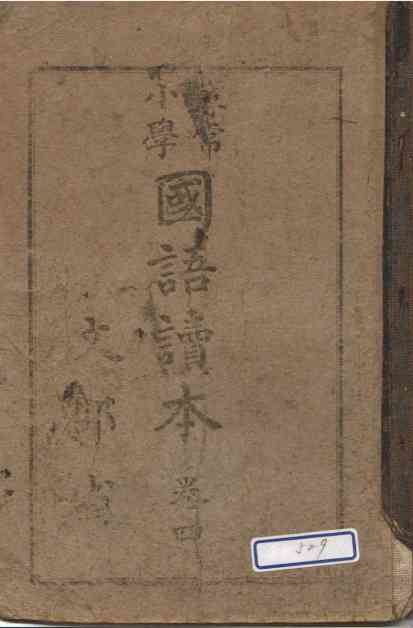 尋常
小學
國語讀本 卷四
文部省
529